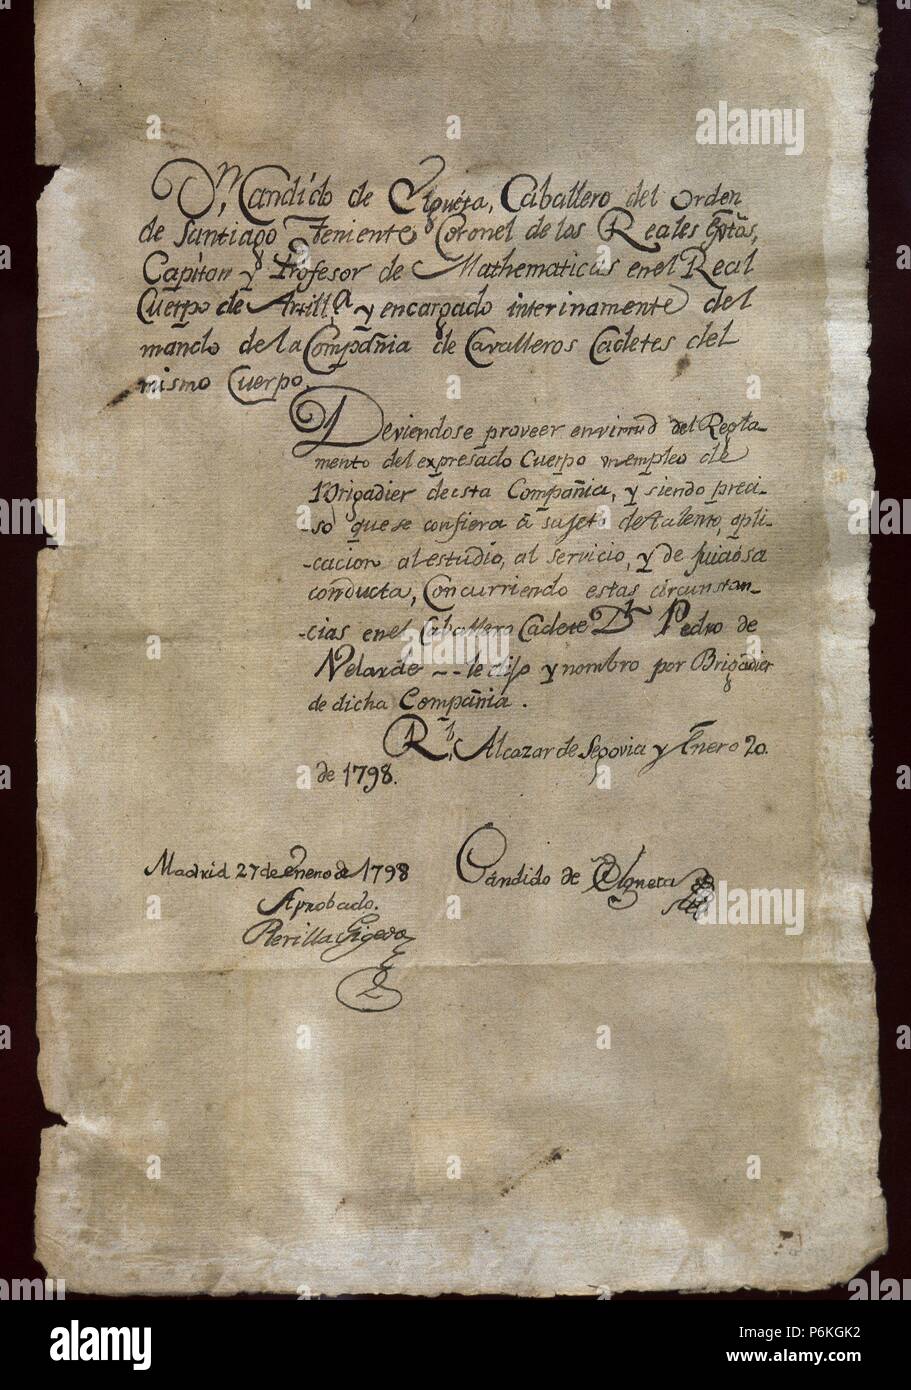 Dn. Candido de Elgueta, Caballero del orden
de Santiago Teniente Coronel de los Reales Extos,
Capitan y Profesor de Mathematicas en el Real
Cuerpo de Artilla. y encargado interinamente del
mando de la Compañia de Cavalleros Cadetes del
mismo Cuerpo.
Deviendose proveer en virtud del Regla-
mento del expresado Cuerpo un empleo de
Brigadier de esta Compañia, y siendo preci-
-so que se confiera á sujeto de talento, apli-
-cacion al estudio, al servicio, y de juiciosa
conducta, Concurriendo estas circunstan-
-cias en el Caballero Cadete Dn. Pedro de
Velarde -- le elijo y nombro por Brigadier
de dicha Compañia.
Rl. Alcazar de Segovia y Enero 20.
de 1798.
Madrid 27 de Enero de 1798
Aprobado.
Revilla Gigedo
Cándido de Elgueta
alamy
a
alamy stock photo
P6KGK2
www.alamy.com